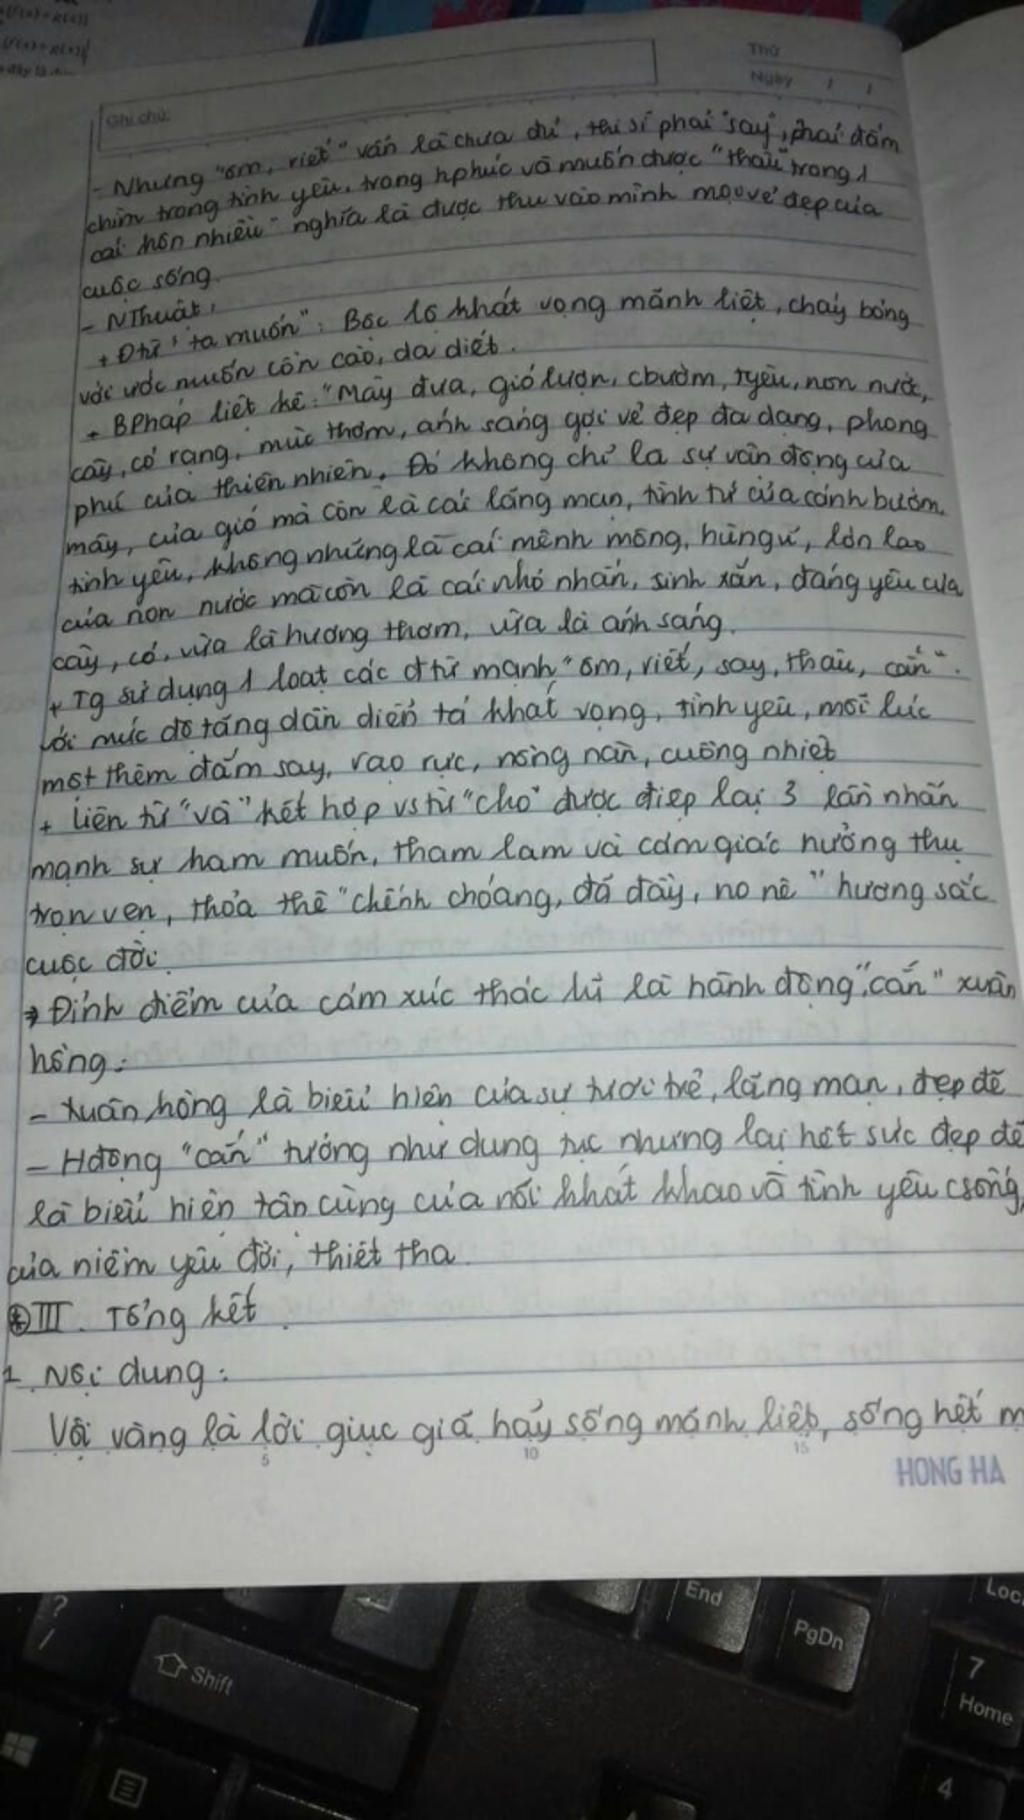 Thứ
Ngày / /
Ghi chú:
- Nhưng "ôm, riết" vẫn là chưa đủ, thi sĩ phải "say", phải đắm
chìm trong tình yêu, trong hphúc và muốn được "thâu" trong 1
cái hôn nhiều" nghĩa là được thu vào mình mọi vẻ đẹp của
cuộc sống.
- NThuật:
+ Đtừ "ta muốn": Bộc lộ khát vọng mãnh liệt, cháy bỏng
với ước muốn cồn cào, da diết.
+ BPháp liệt kê: "Mây đưa, gió lượn, cbướm, tyêu, non nước,
cây, cỏ rạng, mùi thơm, ánh sáng gợi vẻ đẹp đa dạng, phong
phú của thiên nhiên. Đó không chỉ là sự vận động của
mây, của gió mà còn là cái lãng mạn, tình tứ của cánh bướm,
tình yêu, không những là cái mênh mông, hùng vĩ, lớn lao
của non nước mà còn là cái nhỏ nhắn, sinh xắn, đáng yêu của
cây, cỏ, vừa là hương thơm, vừa là ánh sáng.
+ Tg sử dụng 1 loạt các đtừ mạnh "ôm, riết, say, thâu, cắn".
Với mức độ tăng dần diễn tả khát vọng, tình yêu, mỗi lúc
một thêm đắm say, rạo rực, nồng nàn, cuồng nhiệt
+ Liên từ "và" kết hợp vs từ "cho" được điệp lại 3 lần nhấn
mạnh sự ham muốn, tham lam và cảm giác hưởng thụ
trọn vẹn, thỏa thê "chếnh choáng, đã đầy, no nê" hương sắc
cuộc đời.
→ Đỉnh điểm của cảm xúc thác lũ là hành động "cắn" xuân
hồng:
- Xuân hồng là biểu hiện của sự tươi trẻ, lãng mạn, đẹp đẽ
- Hđộng "cắn" tưởng như dung tục nhưng lại hết sức đẹp đẽ
là biểu hiện tận cùng của nỗi khát khao và tình yêu csống,
của niềm yêu đời, thiết tha
III. Tổng kết.
1. Nội dung:
Vội vàng là lời giục giã hãy sống mãnh liệt, sống hết m
5 10 15
HONG HA
? /
Shift
End
PgDn
Loc
7
Home
4